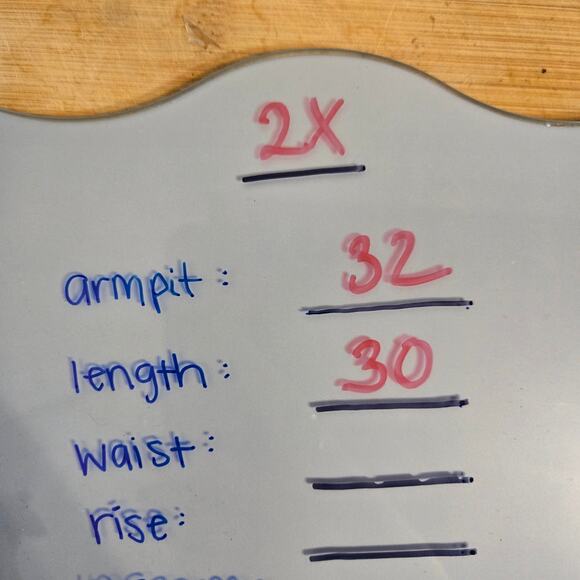 2X
armpit: 32
length: 30
waist:
rise: